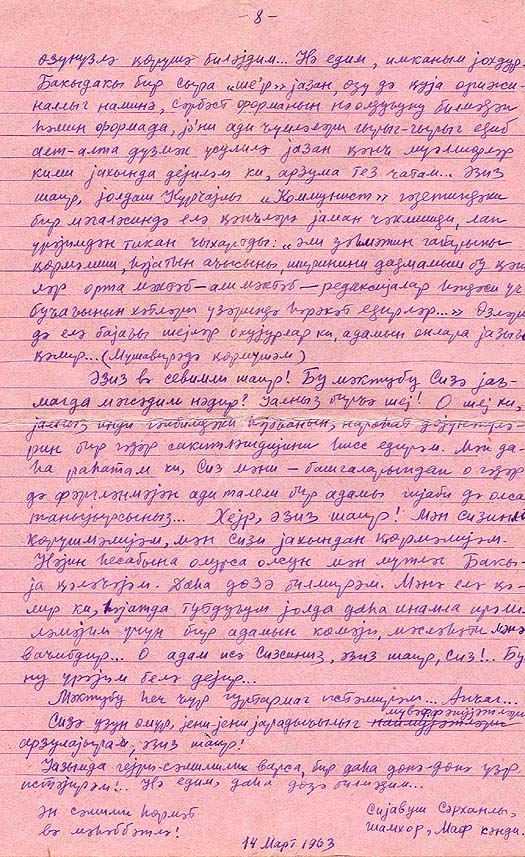 - 8 -
өзүнүзлә көрүшә биләјдим... Нә едим, имканым јохдур.
Бакыдакы бир сыра „ше'р» јазан, өзү дә куја орижи-
наллыг наминә, сәрбәст форманын нә олдуғуну билмәдән
һәмин формада, је'ни ади чүмләләри гырыг-гырыг едиб
алт-алта дүзмәк үсулилә јазан кәнч мүәллифләр
кими јахында дејиләм ки, арзума тез чатам... Әзиз
шаир, јолдаш Курчајлы „Коммунист» гәзетиндәки
бир мәгаләсиндә елә кәнчләрә јаман чәкмишди, лап
үрәјимдән тикан чыхартды: „әли зәһмәтин габарыны
көрмәмиш, һәјатын ачысыны, ширинини дадмамыш бу кәнч
ләр орта мәктәб — али мәктәб — редаксијалар һәндәси үч
бучағынын хәтләри үзәриндә һәрәкәт едирләр...» Өзләри
дә елә бајағы шејләр охујурлар ки, адамын онлара јазығы
кәлир... (Мүшавирәдә көрмүшәм)
Әзиз вә севимли шаир! Бу мәктубу Сизә јаз-
магда мәгсәдим нәдир? Јалныз бирчә шеј! О шеј ки,
јалныз инди гәлбимдәки һәјәчанын, нараһат дөјүнтүлә-
рин бир гәдәр сакитләшдијини һисс едирәм. Мән да-
һа раһатам ки, Сиз мәни — башгаларындан о гәдәр
дә фәргләнмәјән ади талели бир адамы гијаби дә олса
танијырсыныз... Хејр, әзиз шаир! Мән Сизинлә
көрүшмәлијәм, мән Сизи јахындан көрмәлијәм.
Нәјин һесабына олурса олсун мән мүтләг Бакы-
ја кәләҹәјәм. Даһа дөзә билмирәм. Мәнә елә кә-
лир ки, һәјатда тутдуғум јолда даһа инамла ирәли-
ләмәјим үчүн бир адамын көмәји, мәсләһәти мәнә
ваҹибдир... О адам исә Сизсиниз, әзиз шаир, Сиз!.. Бу
ну үрәјим белә дејир...
Мәктубу һеч ҹүр гуртармаг истәмирәм... Анҹаг...
Сизә узун өмүр, јени-јени јарадыҹылыг мүвәффәгијјәтләри
арзулајырам, әзиз шаир!
Јазымда гејри-сәмимилик варса, бир даһа дөнә-дөнә үзр
истәјирәм!.. Нә едим, даһа дөзә билмәдим...
Ән сәмими һөрмәт
вә мәһәббәтлә!
Сијавуш Сәрханлы,
Шамхор, Маф кәнди.
14 Март 1963